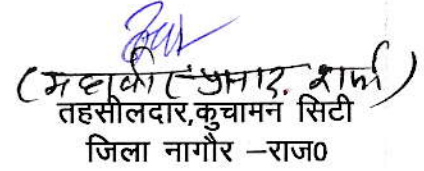 (महावीर प्रसाद शर्मा)
तहसीलदार,कुचामन सिटी
जिला नागौर –राज0